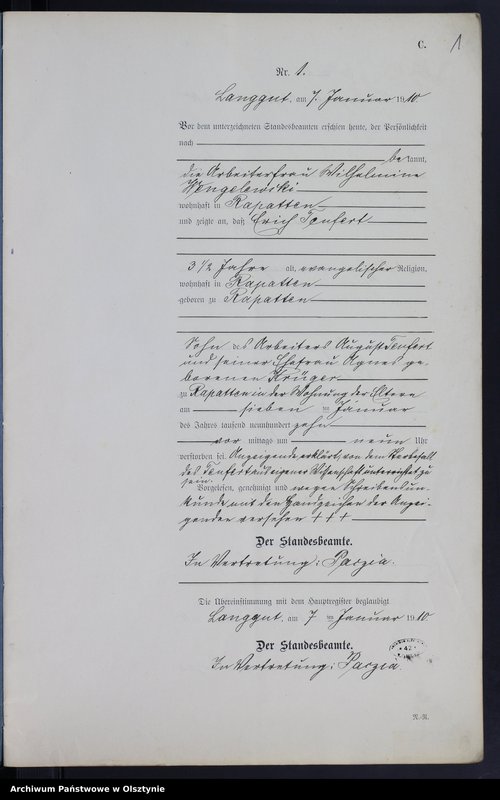 C. 1
Nr. 1.
Langgut, am 7. Januar 1910.
Vor dem unterzeichneten Standesbeamten erschien heute, der Persönlichkeit
nach
bekannt,
die Arbeiterfrau Wilhelmine
Wengelewski
wohnhaft in Rapatten
und zeigte an, daß Erich Tenfert
3 1/2 Jahre alt, evangelischer Religion,
wohnhaft in Rapatten
geboren zu Rapatten
Sohn des Arbeiters August Tenfert
und seiner Ehefrau Agnes ge-
borenen Krüger
zu Rapatten in der Wohnung der Eltern
am sieben ten Januar
des Jahres tausend neunhundert zehn
vor mittags um neun Uhr
verstorben sei. Anzeigende erklärt, von dem Sterbefall
des Tenfert aus eigener Wissenschaft unterrichtet zu
sein.
Vorgelesen, genehmigt und wegen Schreibensun-
kunde mit den Handzeichen der Anzei-
genden versehen +++
Der Standesbeamte.
In Vertretung: Parzia.
Die Übereinstimmung mit dem Hauptregister beglaubigt
Langgut, am 7 ten Januar 1910.
Der Standesbeamte.
In Vertretung: Parzia.
R.-R.
Archiwum Państwowe w Olsztynie